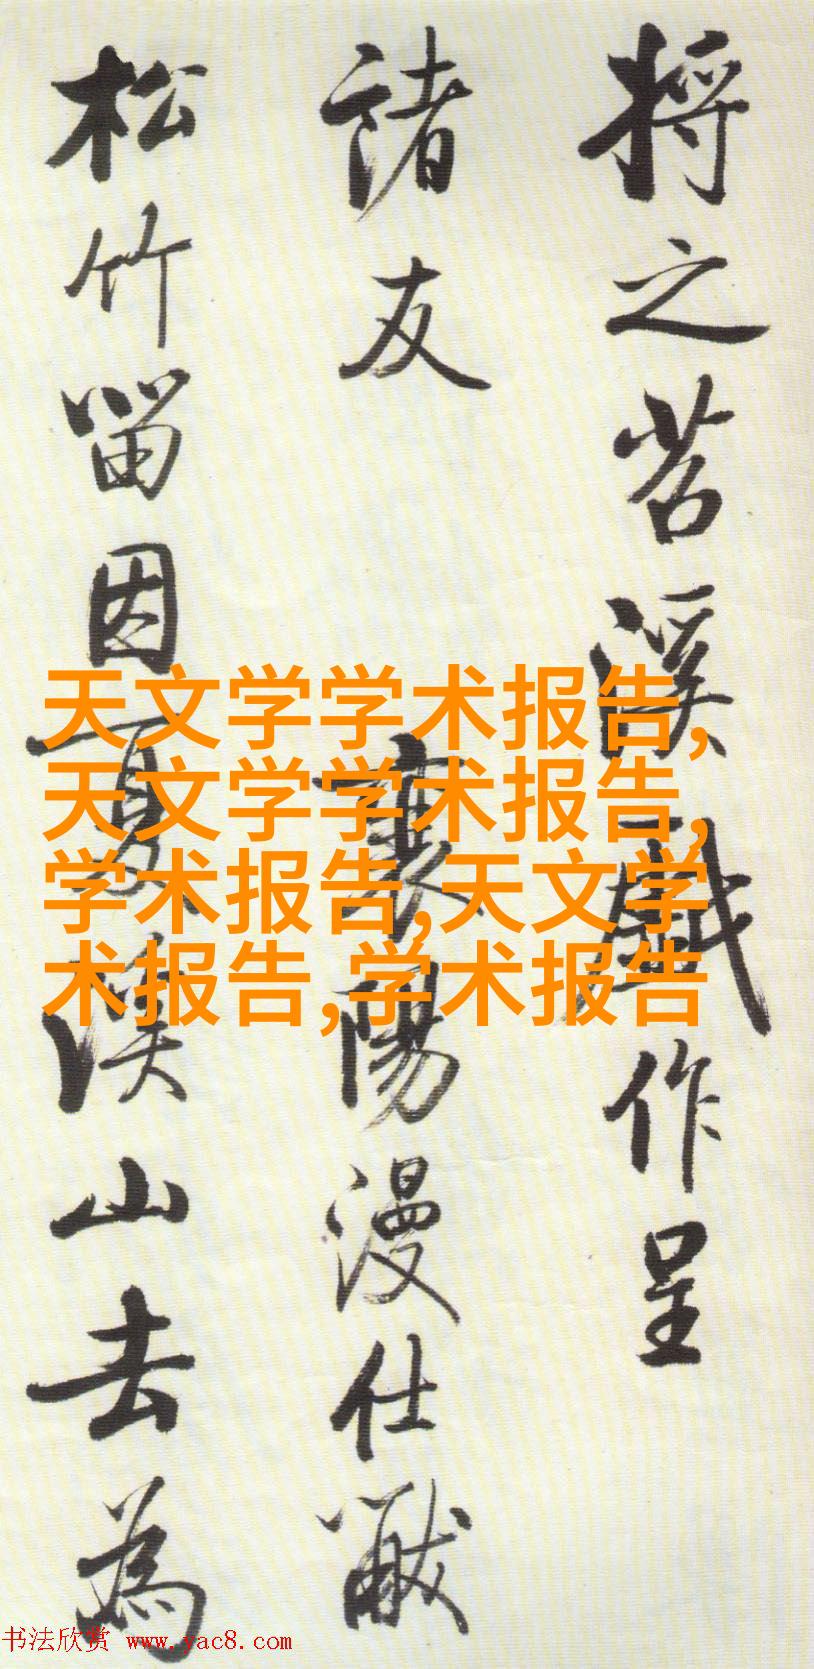 将之苕溪戏作呈
诸友
襄阳漫仕黻
松竹留因夏溪山去为
天文学学术报告,
天文学学术报告,
学术报告,天文学学
术报告,学术报告
书法欣赏 www.yac8.com